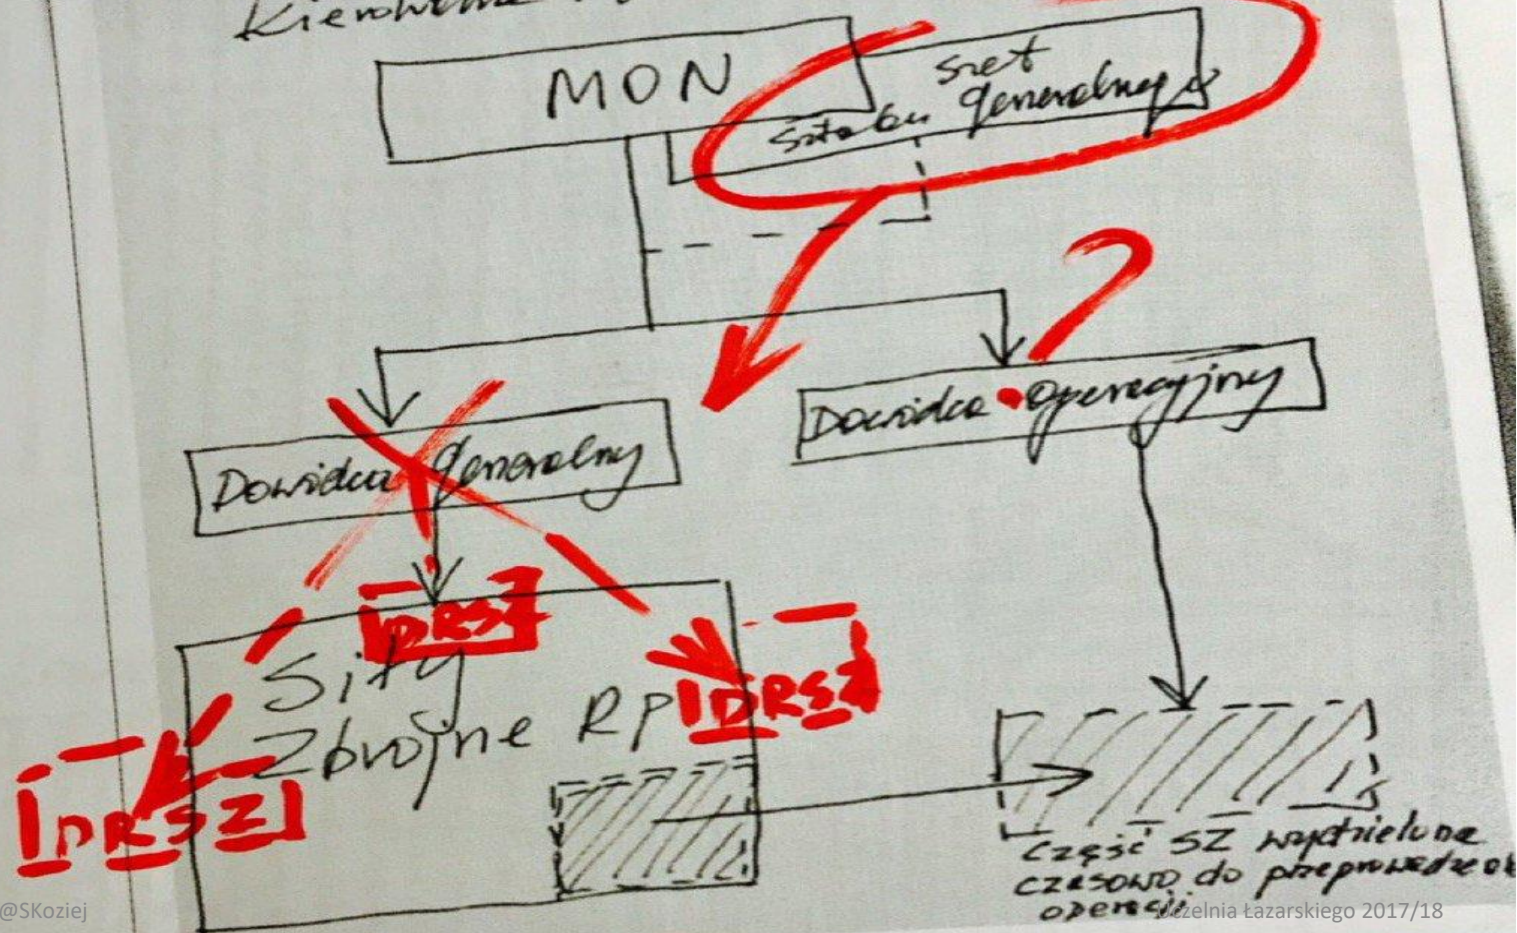 Kierowanie
MON
szef
Sztabu Generalnego
?
Dowódca Operacyjny
Dowódca Generalny
DRSZ
Siły
Zbrojne RP
DRSZ
DRSZ
Część SZ wydzielona
czasowo do
operacji
@SKoziej
Uczelnia Łazarskiego 2017/18